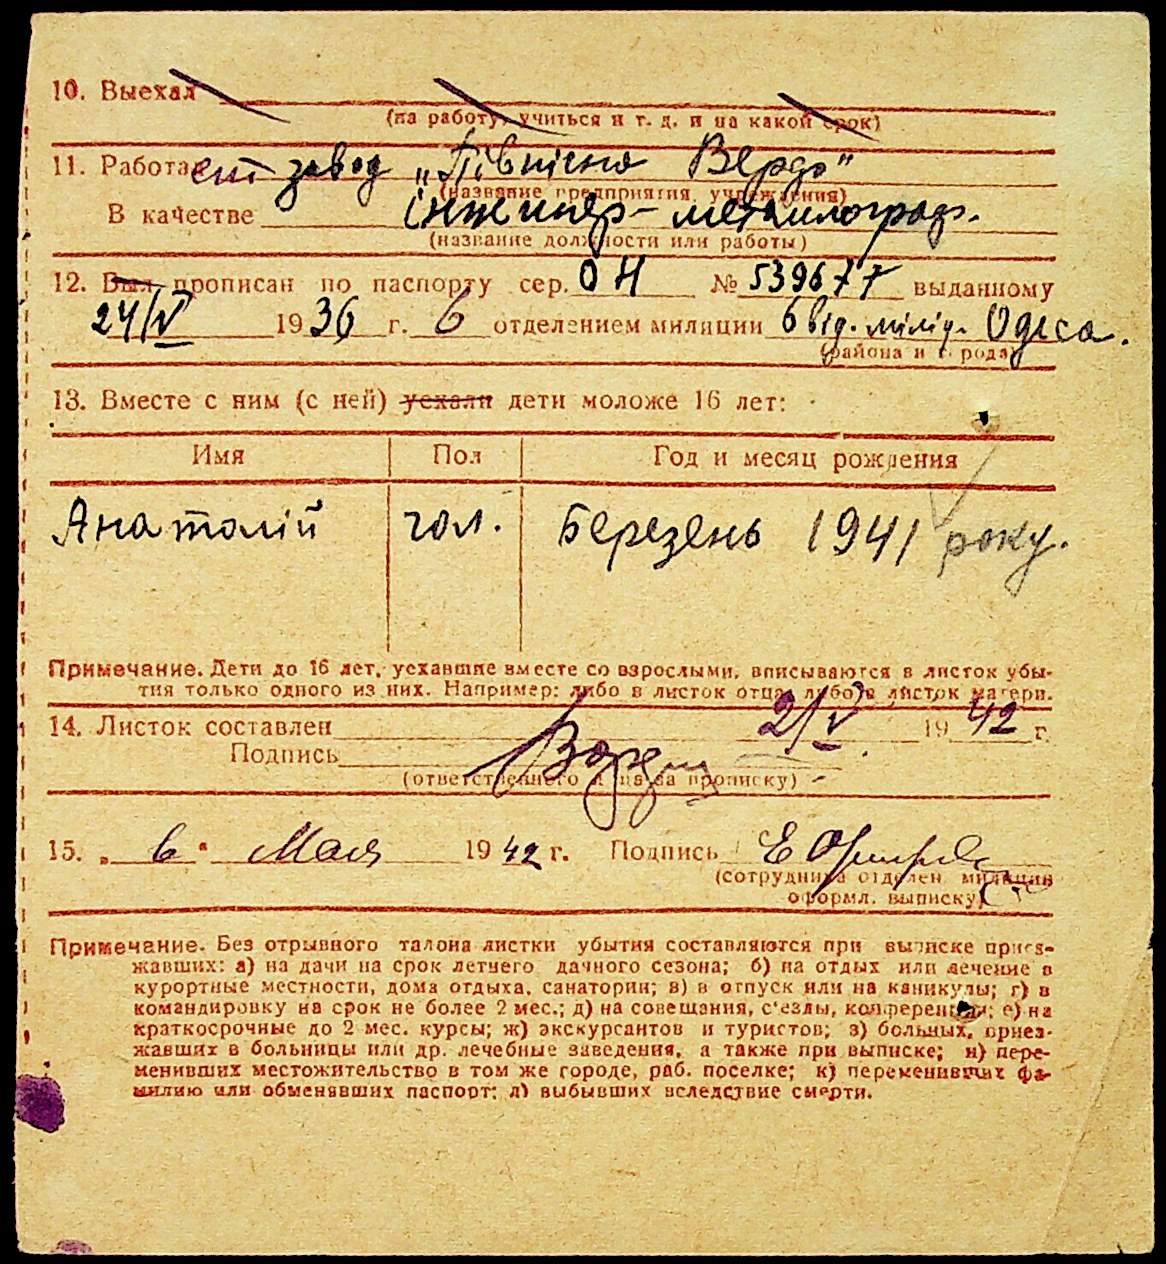 10. Выехал
(на работу, учиться и т. д. и на какой срок)
11. Работает завод „Північна Вердь"
(название предприятия, учреждения)
В качестве інжинер-металлограф.
(название должности или работы)
12. Был прописан по паспорту сер. ОН № 539677 выданному
24/IV 1936 г. 6 отделением милиции 6 від. міліц. Одеса.
(района и города)
13. Вместе с ним (с ней) уехали дети моложе 16 лет:
Имя Пол Год и месяц рождения
Анатолій чол. Березень 1941 року.
Примечание. Дети до 16 лет, уехавшие вместе со взрослыми, вписываются в листок убы-
тия только одного из них. Например: либо в листок отца, либо в листок матери.
14. Листок составлен 2/V 1942 г.
Подпись
(ответственного лица за прописку)
15. „6" Мая 1942 г. Подпись
(сотрудника отделен. милиции
оформл. выписку)
Примечание. Без отрывного талона листки убытия составляются при выписке приез-
жавших: а) на дачи на срок летнего дачного сезона; б) на отдых или лечение в
курортные местности, дома отдыха, санатории; в) в отпуск или на каникулы; г) в
командировку на срок не более 2 мес.; д) на совещания, с'езды, конференции; е) на
краткосрочные до 2 мес. курсы; ж) экскурсантов и туристов; з) больных, приез-
жавших в больницы или др. лечебные заведения, а также при выписке; и) пере-
менивших местожительство в том же городе, раб. поселке; к) переменивших фа-
милию или обменявших паспорт; л) выбывших вследствие смерти.